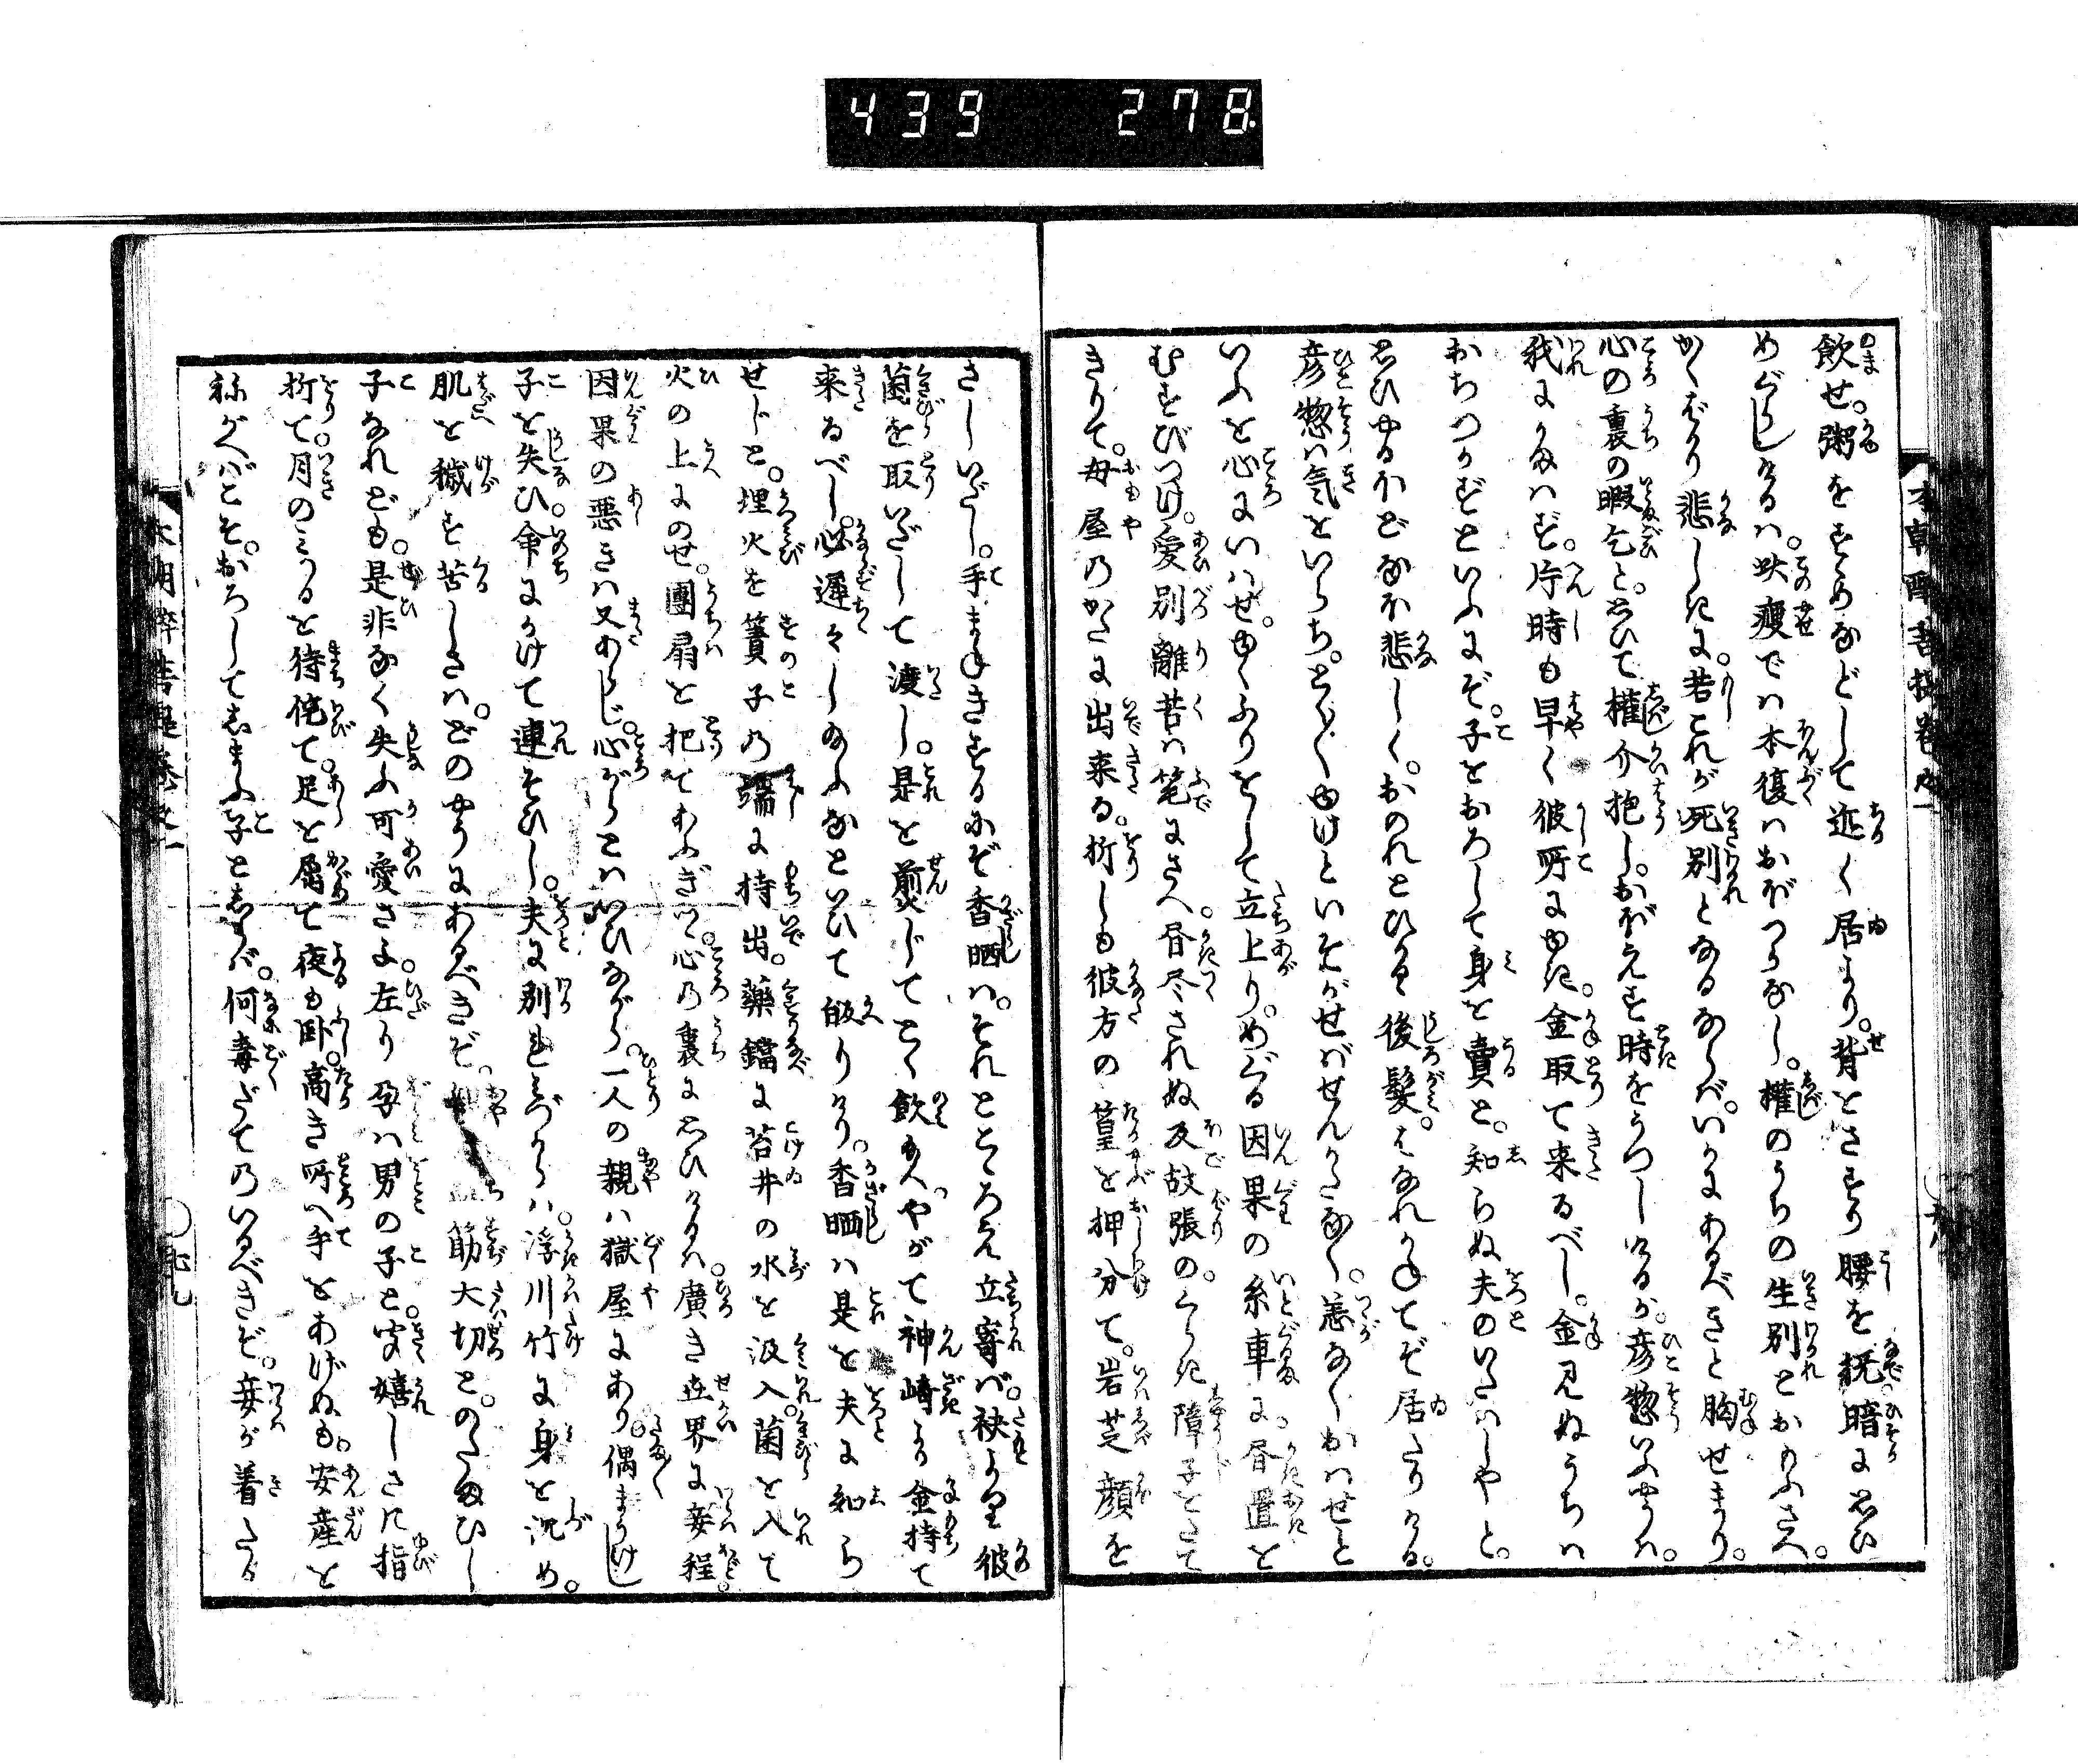 439 278
飲せ。粥をすゝめなどして近く居より。背をさすり腰を撫。暗に思ひ
めぐらしけるハ。此痩でハ本復ハおぼつかなし。権のうちの生別とおもふさへ。
かくばかり悲しきに。若これが死別となるならバ。いかにあるべきと胸せまり。
心の裏の暇乞と。思ひて権介抱し。おぼえず時をうつしけるが。彦惣いふやうハ。
我にたまハず。片時も早く彼所にゆき。金取て来るべし。金見ぬうちハ
おちつかずといふにぞ。子をおろして身を賣と。知らぬ夫のいたハしやと。
思ひやるほどなほ悲しく。おのれとひかるゝ後髪。はなれかねてぞ居たりける。
彦惣ハ気をいらち。とく〳〵ゆけといそがせバせんかたなく。恙なくおハせと
いふを心にいハせ。ゆくふりをして立上り。めぐる因果の糸車に。昼置を
むすびつけ。愛別離苦ハ笔にさへ。尽されぬ反故張の。くらき障子をたて
きりて。母屋のかたに出来る。折しも彼方の篁を押分て。岩芝顔を
さしいだし。手まねきするにぞ香晒ハ。それとこゝろえ立寄バ。袂より彼
菌を取いだして渡し。是を煎じてとく飲給へ。やがて神崎より金持て
来るべし。必遅々し給ふなといひて皈りけり。香晒ハ是を夫に知ら
せじと。埋火を簀子の端に持出。藥鐺に苔井の水を汲入。菌を入て
火の上にのせ。團扇を把てあふぎつゝ心の裏に思ひけるハ。廣き世界に妾程
因果の悪きハ又あらじ。心がらとハいひながら。一人の親ハ獄屋にあり。偶まうけし
子を失ひ。命にかけて連そひし。夫に別れみづからハ。浮川竹に身を沈め。
肌を穢す苦しさハ。どのやうにあるべきぞ。筋大切と。のたまひし
子なれども。是非なく失ふ可愛さよ。左り孕ハ男の子と。聞嬉しさに指
折て。月のみつるを待侘て。足を屈て夜も臥。高き所へ手をあげぬも。安産を
祢がへバこそ。おろしてしまふ子としらバ。何毒だての入るべきぞ。妾が着たる